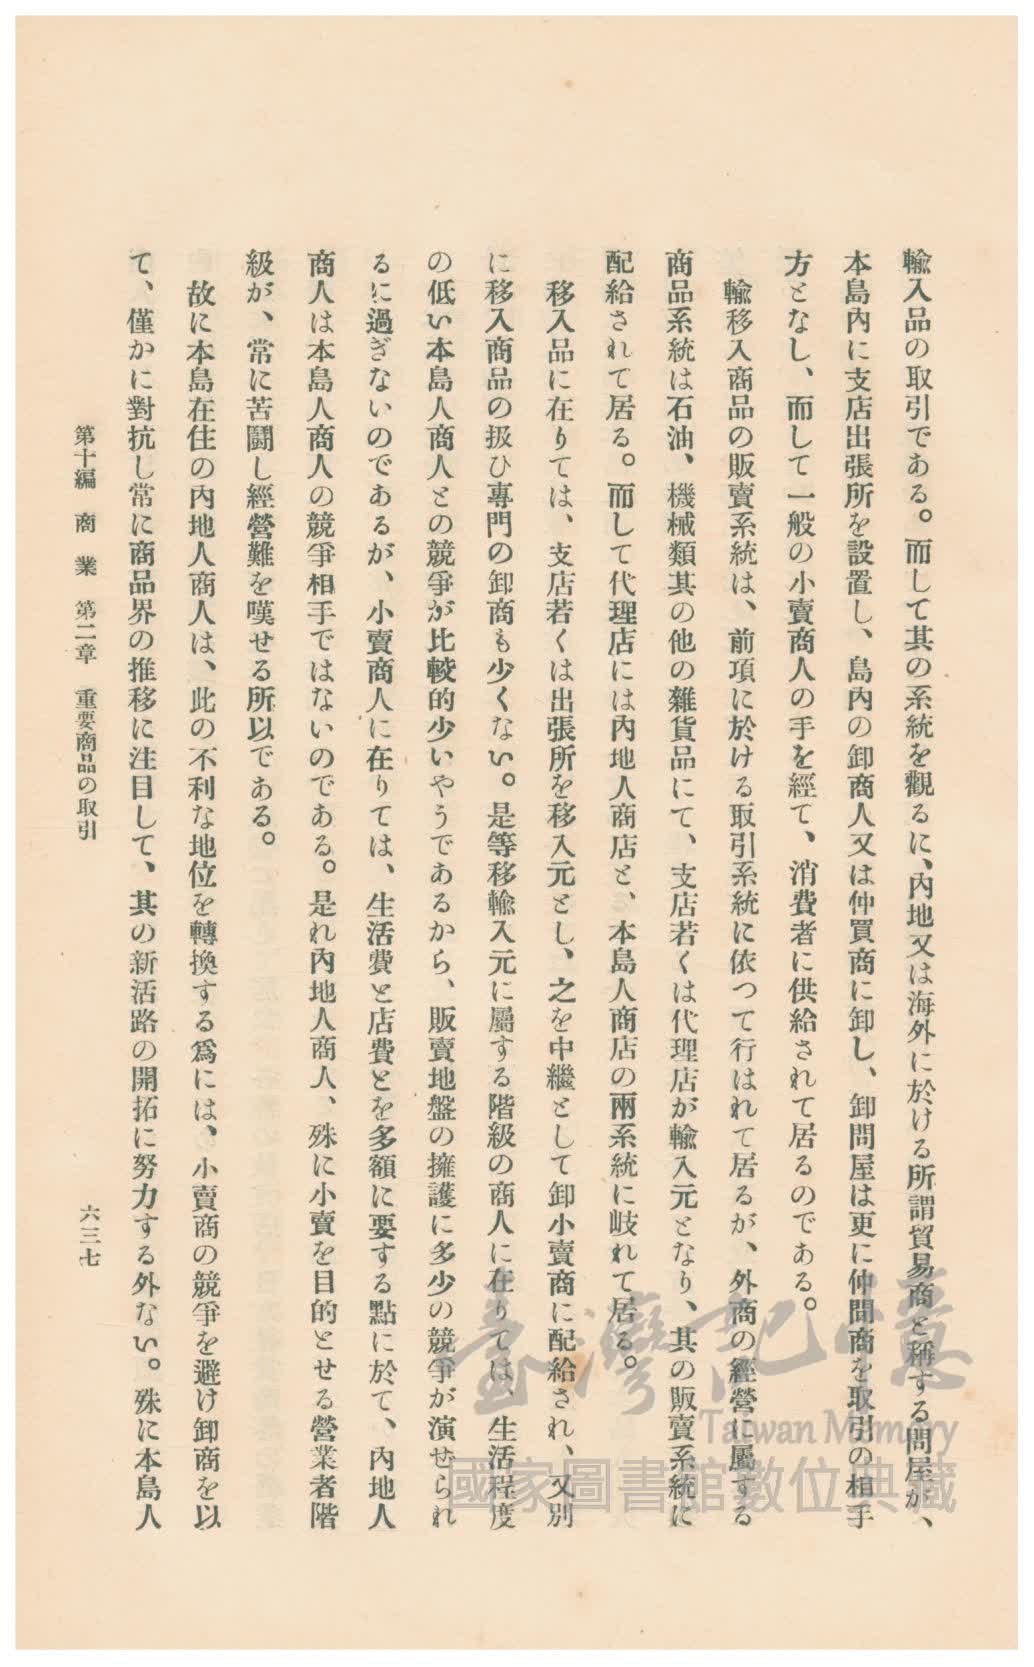 輸入品の取引である。而して其の系統を觀るに、內地又は海外に於ける所謂貿易商と稱する問屋が、
本島內に支店出張所を設置し、島內の卸商人又は仲買商に卸し、卸問屋は更に仲間商を取引の相手
方となし、而して一般の小賣商人の手を經て、消費者に供給されて居るのである。
輸移入商品の販賣系統は、前項に於ける取引系統に依つて行はれて居るが、外商の經營に屬する
商品系統は石油、機械類其の他の雜貨品にて、支店若くは代理店が輸入元となり、其の販賣系統に
配給されて居る。而して代理店には內地人商店と、本島人商店の兩系統に岐れて居る。
移入品に在りては、支店若くは出張所を移入元とし、之を中繼として卸小賣商に配給され、又別
に移入商品の扱ひ專門の卸商も少くない。是等移輸入元に屬する階級の商人に在りては、生活程度
の低い本島人商人との競爭が比較的少いやうであるから、販賣地盤の擁護に多少の競爭が演せられ
るに過ぎないのであるが、小賣商人に在りては、生活費と店費とを多額に要する點に於て、內地人
商人は本島人商人の競爭相手ではないのである。是れ內地人商人、殊に小賣を目的とせる營業者階
級が、常に苦鬪し經營難を嘆せる所以である。
故に本島在住の內地人商人は、此の不利な地位を轉換する爲には、小賣商の競爭を避け卸商を以
て、僅かに對抗し常に商品界の推移に注目して、其の新活路の開拓に努力する外ない。殊に本島人
第十編　商　業　第二章　重要商品の取引
六三七
臺灣記憶
Taiwan Memory
國家圖書館數位典藏